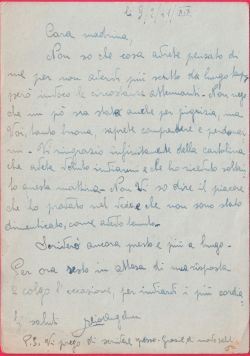 li 9/2/41 XIX
Cara madrina,
Non so che cosa avrete pensato di
me per non avervi più scritto da lungo tempo
però invoco le circostanze attenuanti. Non nego
che un pò sia stata anche per pigrizia, ma
Voi, tanto buona, saprete compatire e perdonar
mi. Vi ringrazio infinitamente della cartolina
che avete voluto inviarmi e che ho ricevuto soltan
to questa mattina. Non Vi so dire il piacere
che ho provato nel che non sono stato
dimenticato, come avevo temuto.
Scriverò ancora presto e più a lungo.
Per ora resto in attesa di una risposta
e colgo l'occasione, per inviarvi i più cordia
li saluti
P.S. Vi prego di scrivere spesso